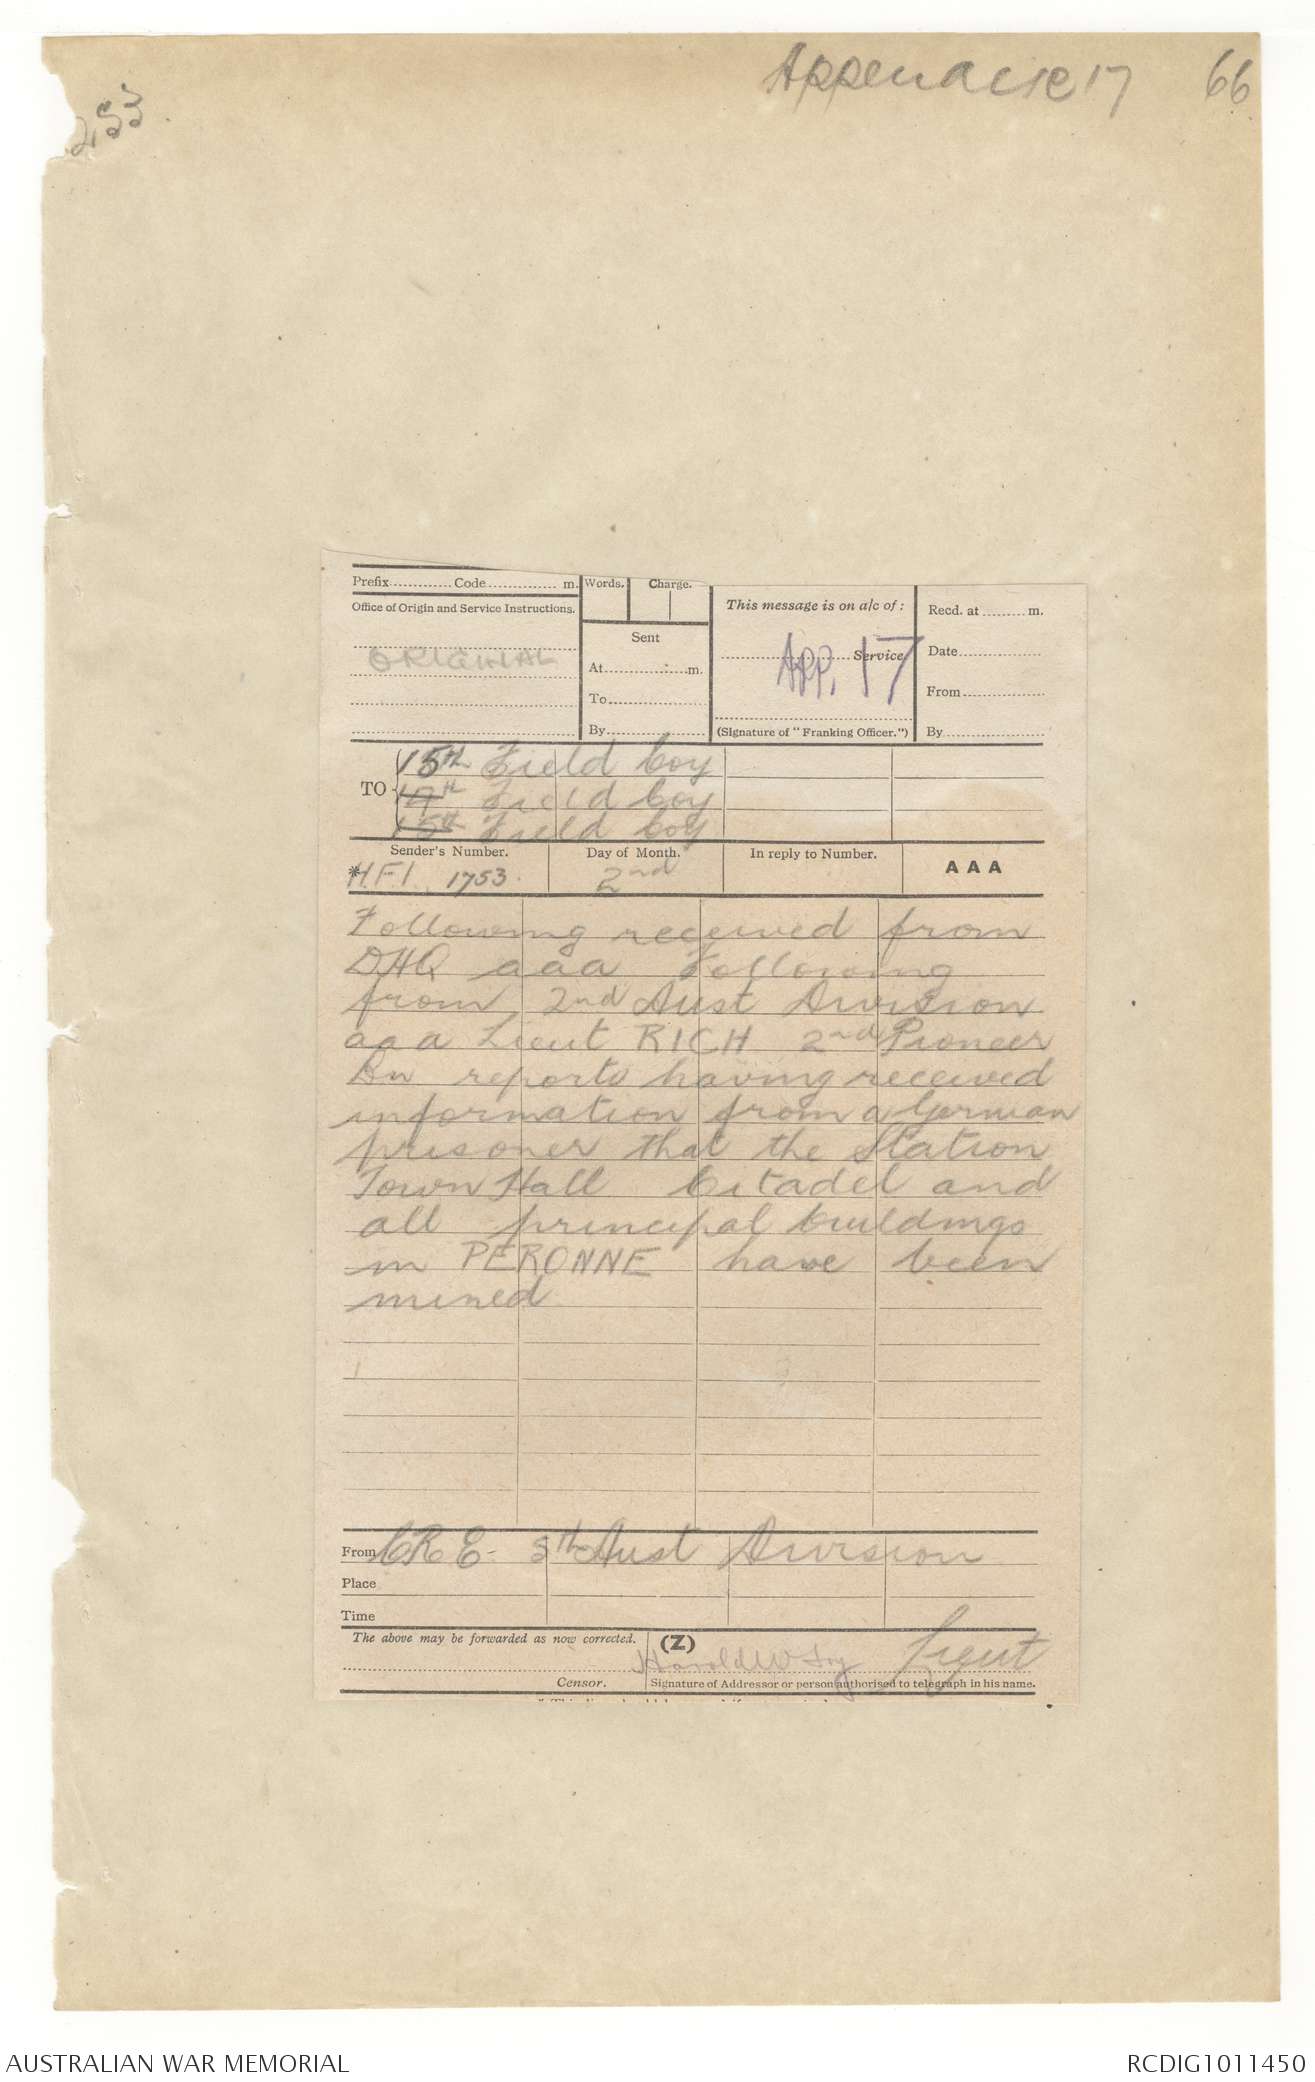 Appendix 17 66
253
Prefix............Code...............m. Words. Charge.
This message is on a/c of: Recd. at.........m.
Office of Origin and Service Instructions.
ORIGINAL
Sent
At............m.
To............
By............
APP. 17
............Service
(Signature of "Franking Officer.")
Date............
From............
By............
TO
15th Field Coy
14th Field Coy
15th Field Coy
Sender's Number. Day of Month. In reply to Number. AAA
*HF1 1753. 2nd
Following received from
DHQ aaa Following
from 2nd Aust Division
aaa Lieut RICH 2nd Pioneer
Bn reports having received
information from a German
prisoner that the Station
Town Hall Citadel and
all principal buildings
in PERONNE have been
mined
From CRE 5th Aust Division
Place
Time
The above may be forwarded as now corrected. (Z)
Harold W Lieut
Censor. Signature of Addressor or person authorised to telegraph in his name.
AUSTRALIAN WAR MEMORIAL RCDIG1011450